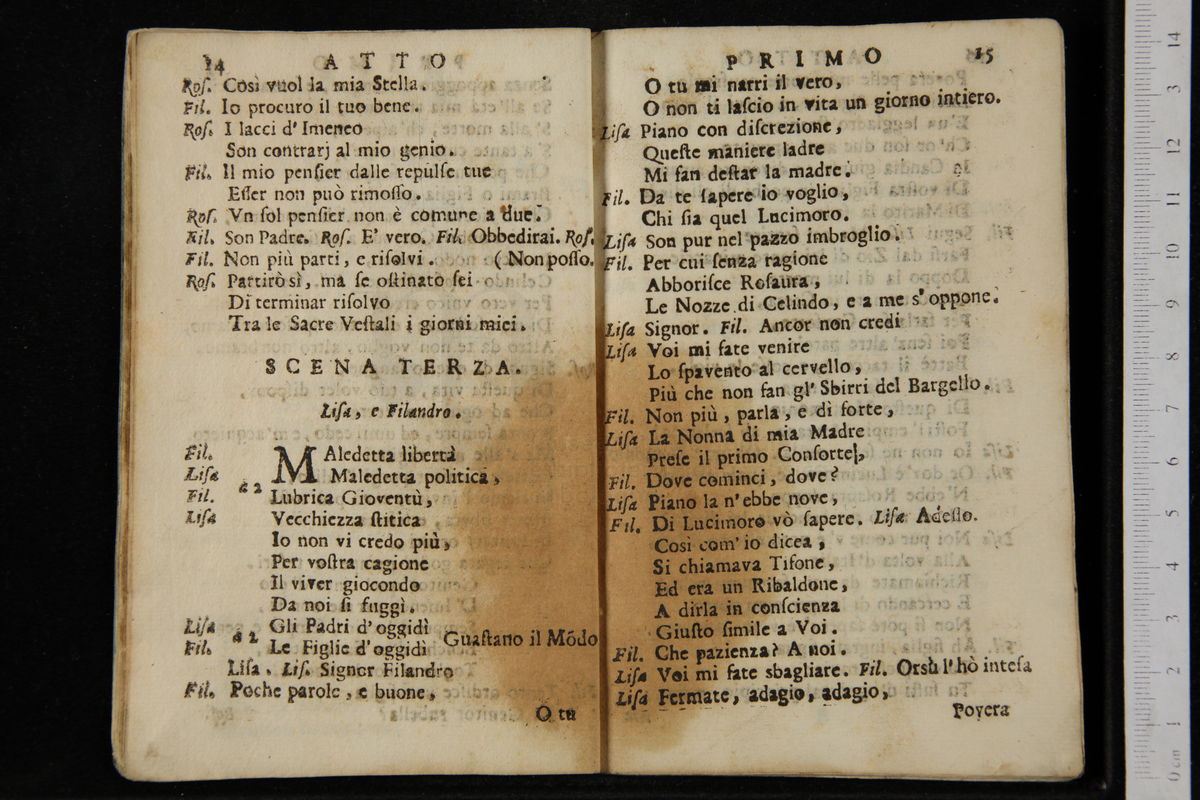 14 ATTO
Roſ. Così vuol la mia Stella.
Fil. Io procuro il tuo bene.
Roſ. I lacci d' Imeneo
Son contrarj al mio genio.
Fil. Il mio penſier dalle repulſe tue
Eſſer non può rimoſſo.
Roſ. Vn ſol penſier non è comune a due.
Fil. Son Padre. Roſ. E' vero. Fil. Obbedirai. Roſ.
Fil. Non più parti, e riſolvi. ( Non poſſo.
Roſ. Partirò sì, ma ſe oſtinato ſei
Di terminar riſolvo
Tra le Sacre Veſtali i giorni miei.
SCENA TERZA.
Liſa, e Filandro.
Fil. MAledetta libertà
Liſa Maledetta politica,
Fil. a 2 Lubrica Gioventù,
Liſa Vecchiezza ſtitica
Io non vi credo più,
Per voſtra cagione
Il viver giocondo
Da noi ſi fuggì.
Liſa Gli Padri d'oggidì
a 2 Guaſtano il Mõdo
Fil. Le Figlie d'oggidì
Liſa. Liſ. Signer Filandro
Fil. Poche parole, e buone,
O tu
PRIMO 15
O tu mi narri il vero,
O non ti laſcio in vita un giorno intiero.
Liſa Piano con diſcrezione,
Queſte maniere ladre
Mi fan deſtar la madre.
Fil. Da te ſapere io voglio,
Chi ſia quel Lucimoro.
Liſa Son pur nel pazzo imbroglio.
Fil. Per cui ſenza ragione
Abboriſce Roſaura,
Le Nozze di Celindo, e a me s'oppone.
Liſa Signor. Fil. Ancor non credi
Liſa Voi mi fate venire
Lo ſpavento al cervello,
Più che non fan gl' Sbirri del Bargello.
Fil. Non più, parla, e di forte,
Liſa La Nonna di mia Madre
Preſe il primo Conſorte,
Fil. Dove cominci, dove?
Liſa Piano la n'ebbe nove,
Fil. Di Lucimoro vò ſapere. Liſa Adeſſo.
Così com' io dicea,
Si chiamava Tifone,
Ed era un Ribaldone,
A dirla in conſcienza
Giuſto ſimile a Voi.
Fil. Che pazienza? A noi.
Liſa Voi mi fate sbagliare. Fil. Orsù l' hò inteſa
Liſa Fermate, adagio, adagio,
Povera
14
13
12
11
10
9
8
7
6
5
4
3
2
1
0 cm